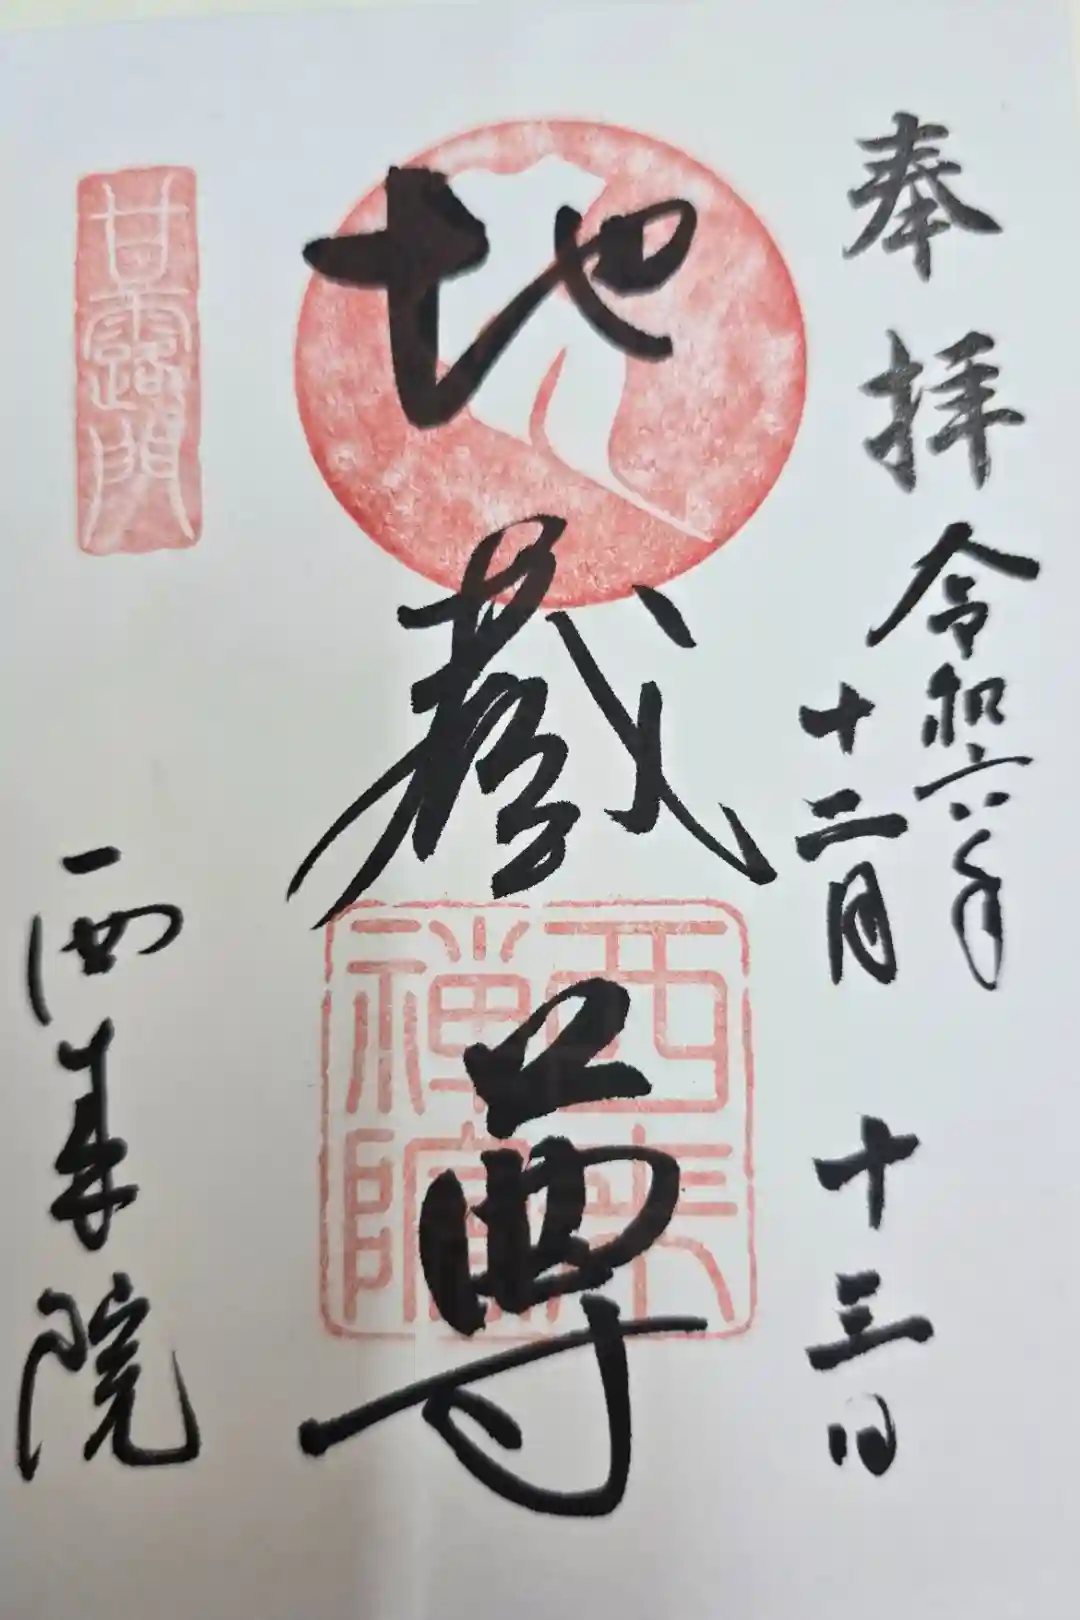 奉拝
令和六年
十二月 十三日
地蔵尊
西来禅院
甘露門
西来院